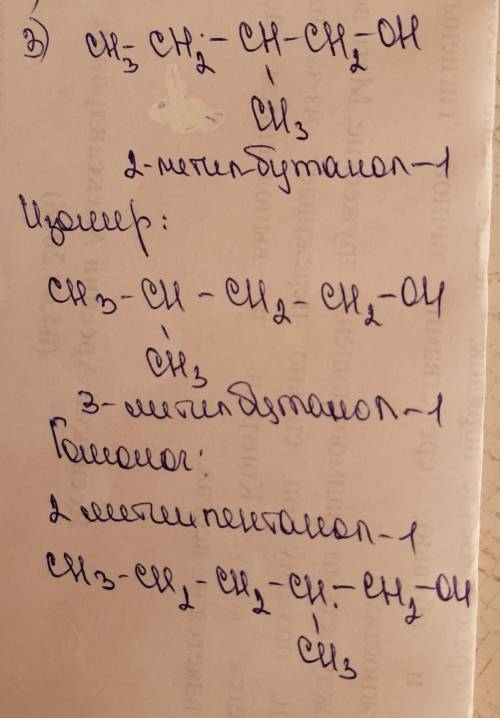 3) CH3 - CH2 - CH - CH2 - OH
CH3
2-метилбутанол-1
Изомер:
CH3 - CH - CH2 - CH2 - OH
CH3
3-метилбутанол-1
Гомолог:
2 метилпентанол-1
CH3 - CH2 - CH2 - CH - CH2 - OH
CH3